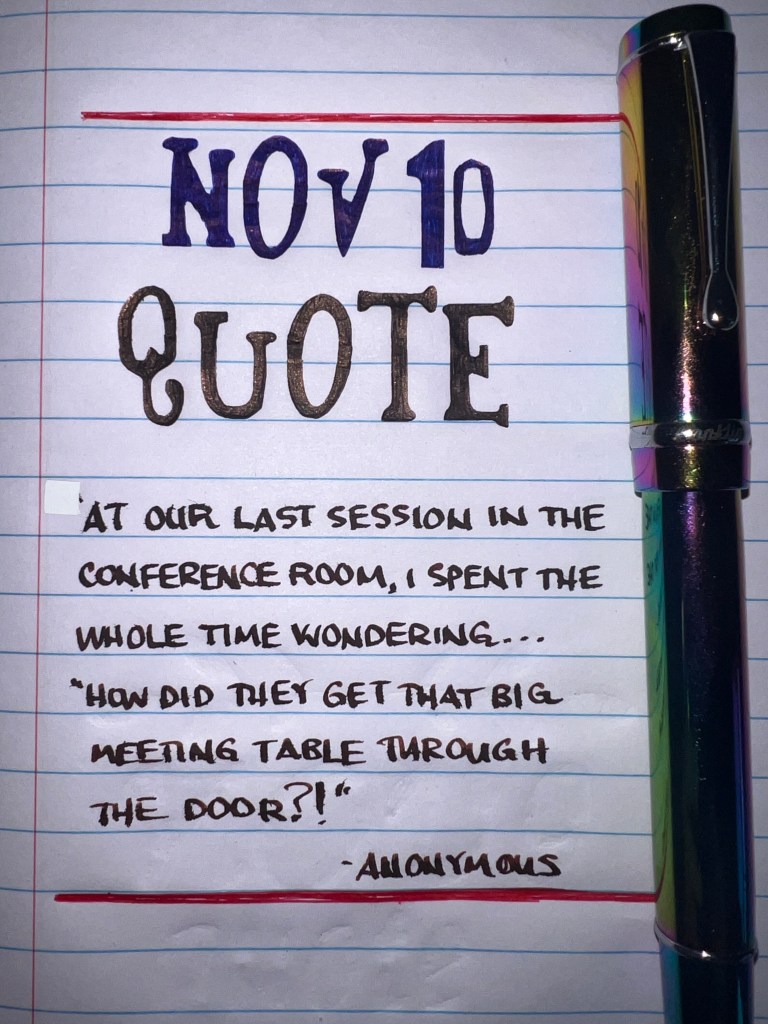 NOV 10
QUOTE
'AT OUR LAST SESSION IN THE
CONFERENCE ROOM, I SPENT THE
WHOLE TIME WONDERING...
"HOW DID THEY GET THAT BIG
MEETING TABLE THROUGH
THE DOOR?!"
-ANONYMOUS